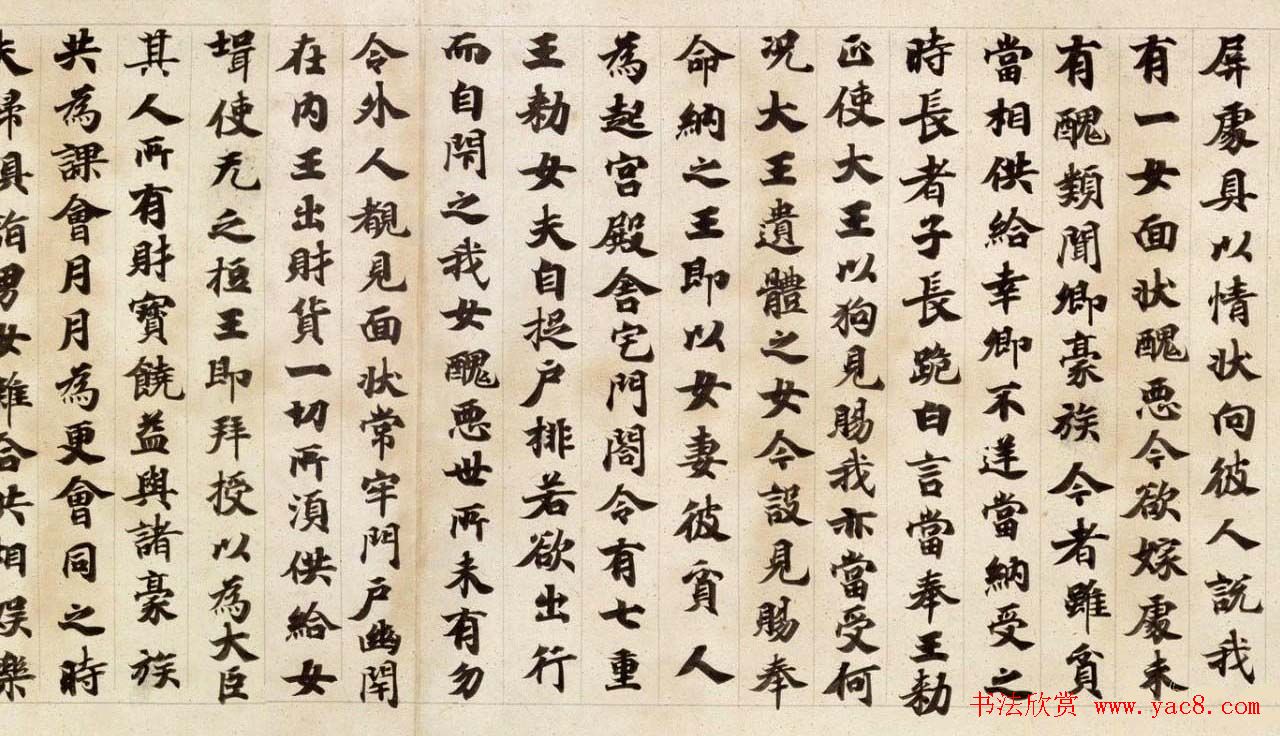 屏處具以情状向彼人説我
有一女面状醜悪今欲嫁處未
有醜類聞卿豪族今者雖貧
當相供給幸卿不逆當納受之
時長者子長跪白言當奉王勅
正使大王以狗見賜我亦當受何
況大王遺體之女今設見賜奉
命納之王即以女妻彼貧人
為起宫殿舎宅門閤令有七重
王勅女夫自捉户排若欲出行
而自閇之我女醜悪世所未有勿
令外人覩見面状常牢門户幽閇
在内王出財貨一切所湏供給女
壻使无之短王即拜授以為大臣
其人所有財寳饒益與諸豪族
共為課會月月為更會同之時
夫歸具詣男女雜合共相娱樂
书法欣赏 www.yac8.com